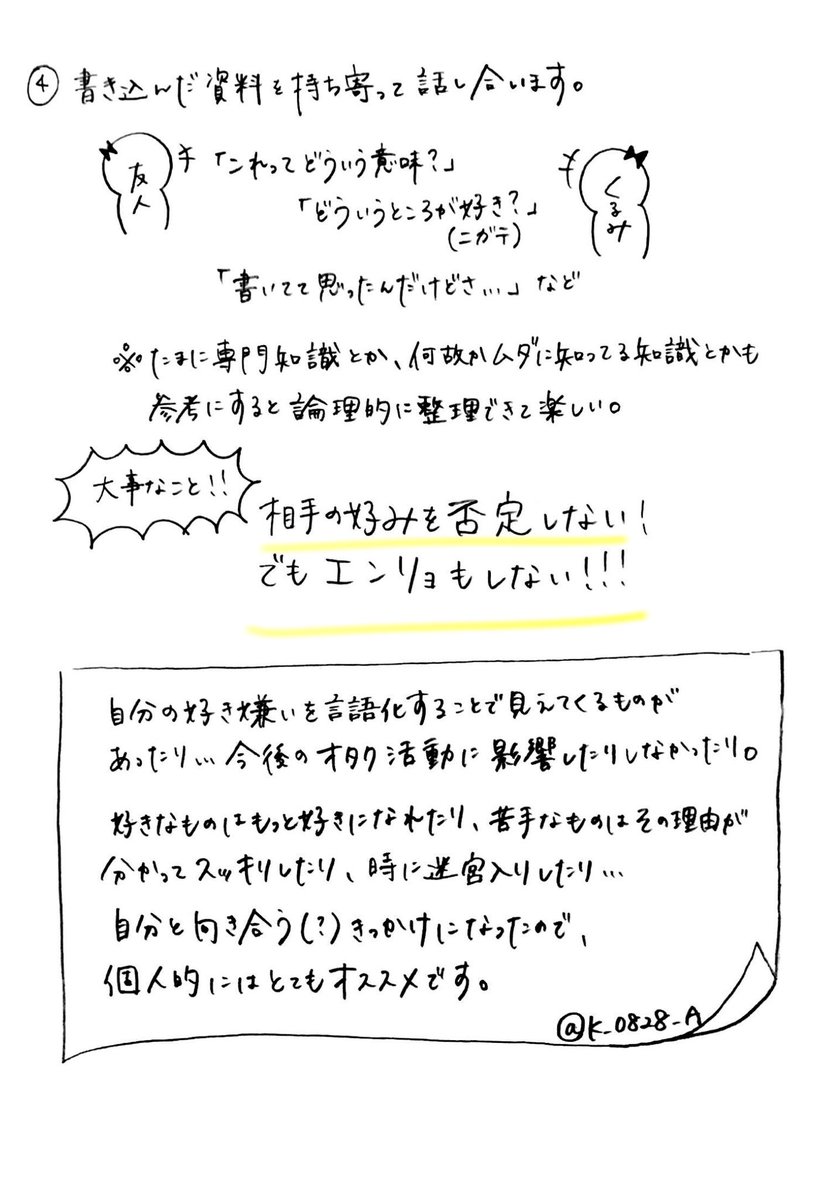 ④ 書き込んだ資料を持ち寄って話し合います。
友人
「これってどういう意味？」
くるみ
「どういうところが好き？」
(ニガテ)
「書いてて思ったんだけどさ…」など
※たまに専門知識とか、何故かムダに知ってる知識とかも
参考にすると論理的に整理できて楽しい。
大事なこと!!
相手の好みを否定しない!
でもエンリョもしない!!!
自分の好き嫌いを言語化することで見えてくるものが
あったり… 今後のオタク活動に影響したりしなかったり。
好きなものはもっと好きになれたり、苦手なものはその理由が
分かってスッキリしたり、時に迷宮入りしたり…
自分と向き合う(?)きっかけになったので、
個人的にはとてもオススメです。
@K_0828_A